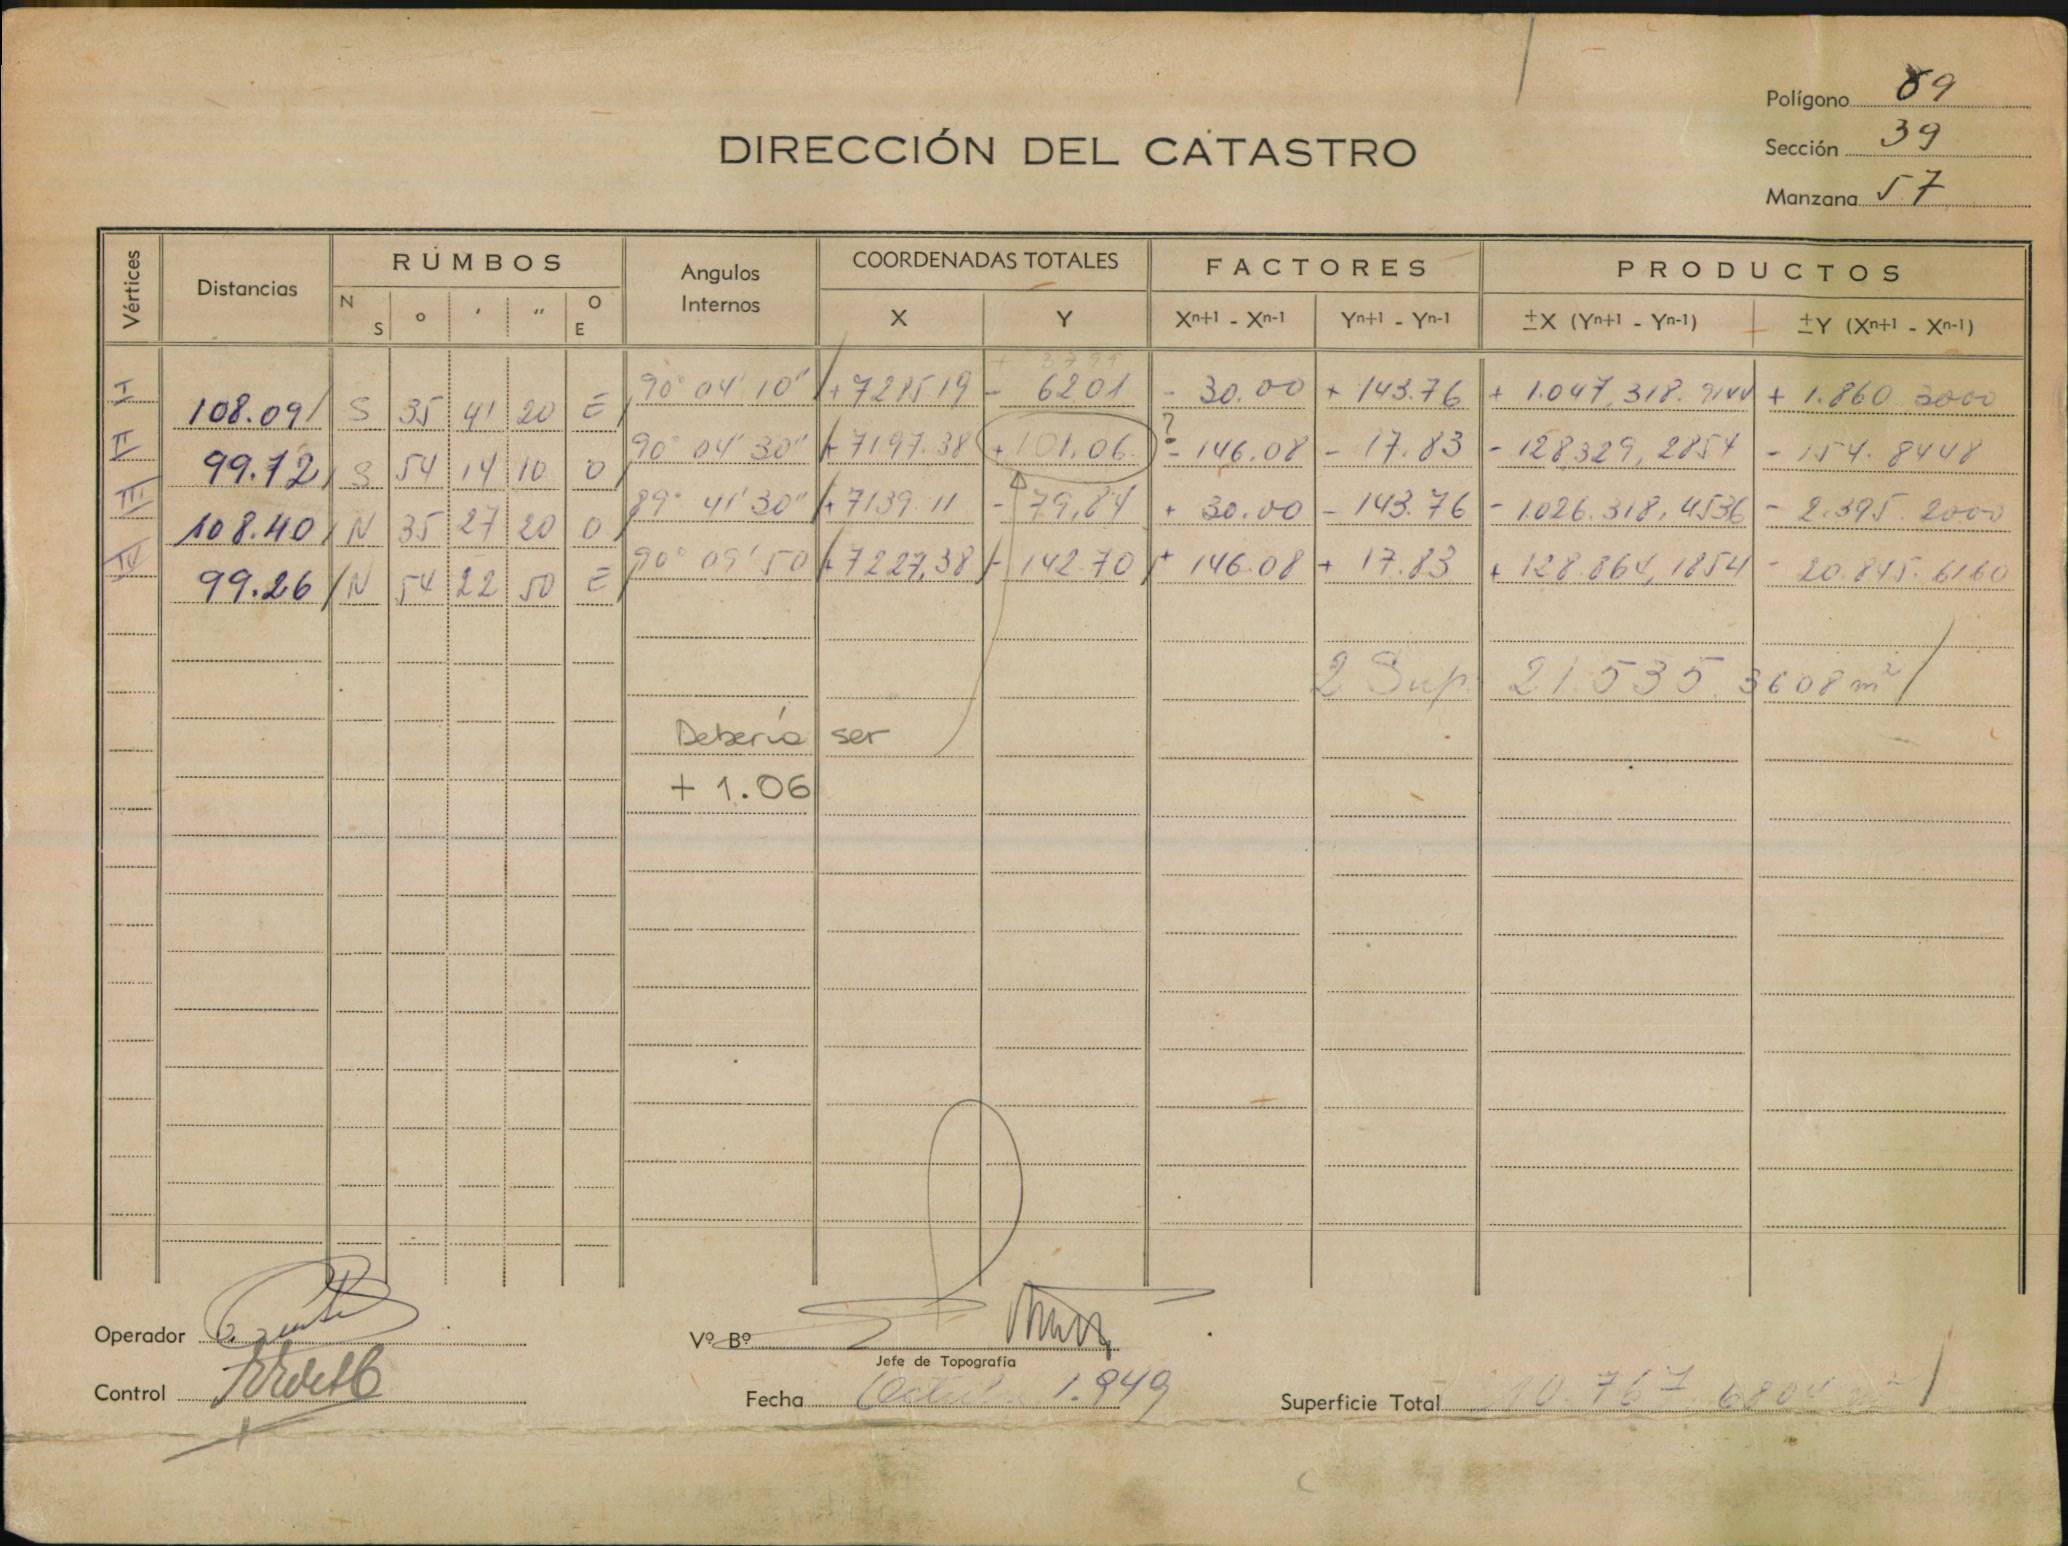 Polígono 89
Sección 39
Manzana 57
DIRECCIÓN DEL CATASTRO
Vértices Distancias RUMBOS Angulos Internos COORDENADAS TOTALES FACTORES PRODUCTOS
N S ° ' " O E X Y Xn+1 - Xn-1 Yn+1 - Yn-1 ±X (Yn+1 - Yn-1) ±Y (Xn+1 - Xn-1)
I 108.09 S 35 41 20 E 90° 04' 10" +7285.19 - 62.01 - 30.00 + 143.76 + 1.047,318.9144 + 1.860.3000
II 99.72 S 54 14 10 O 90° 04' 30" +7197.38 +101.06 ? - 146.08 - 17.83 - 128329,2854 - 154.8448
III 108.40 N 35 27 20 O 89° 41' 30" +7139.11 - 79,84 + 30.00 - 143.76 - 1.026.318,4536 - 2.395.2000
IV 99.26 N 54 22 50 E 90° 09' 50 +7227,38 - 142.70 + 146.08 + 17.83 + 128.864,1854 - 20.845.6160
2 Sup. 21.535.3608 m²
Debería ser
+ 1.06
Operador
Vº Bº
Jefe de Topografía
Control
Fecha Octubre 1.949
Superficie Total 10.767.6804 m²